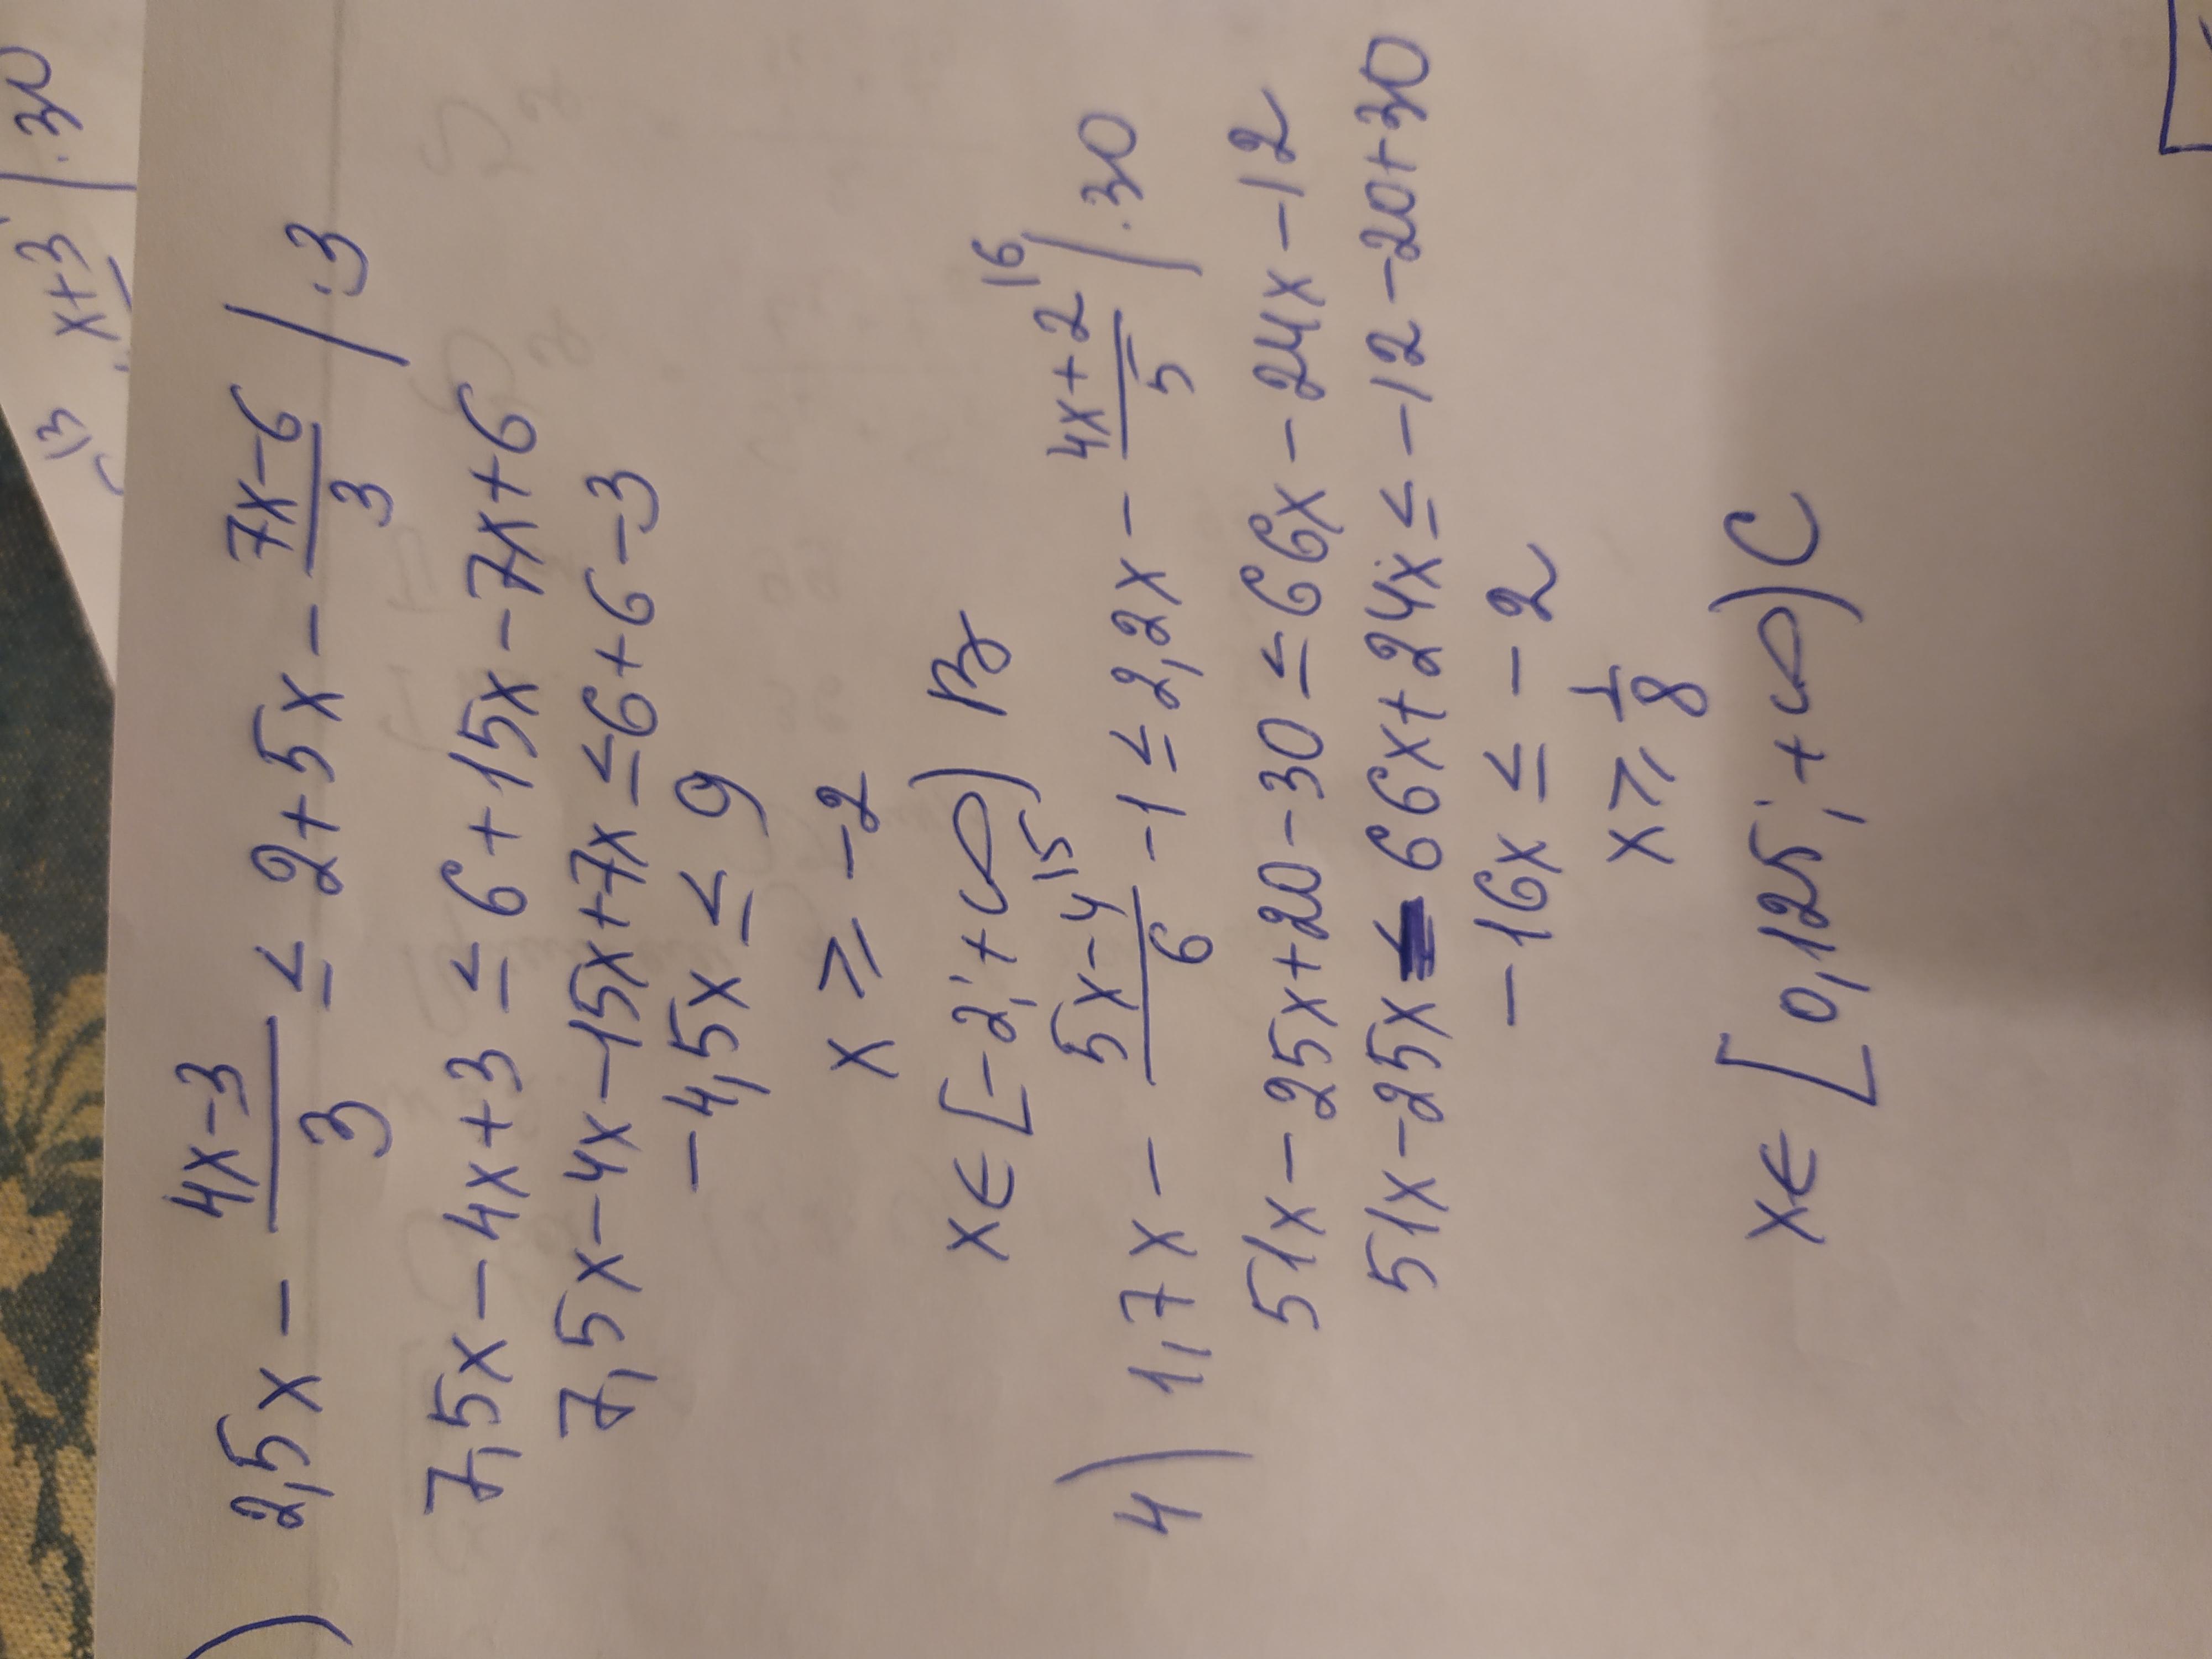 x+3 | ·30
) 2,5x - (4x-3)/3 ≤ 2+5x - (7x-6)/3 | ·3
7,5x-4x+3 ≤ 6+15x-7x+6
7,5x-4x-15x+7x ≤ 6+6-3
-4,5x ≤ 9
x ≥ -2
x∈[-2;+∞) B
4) 1,7x - (5x-4)/6 ^15 - 1 ≤ 2,2x - (4x+2)/5 ^16 | ·30
51x-25x+20-30 ≤ 66x-24x-12
51x-25x-66x+24x ≤ -12-20+30
-16x ≤ -2
x ≥ 1/8
x∈[0,125;+∞) C